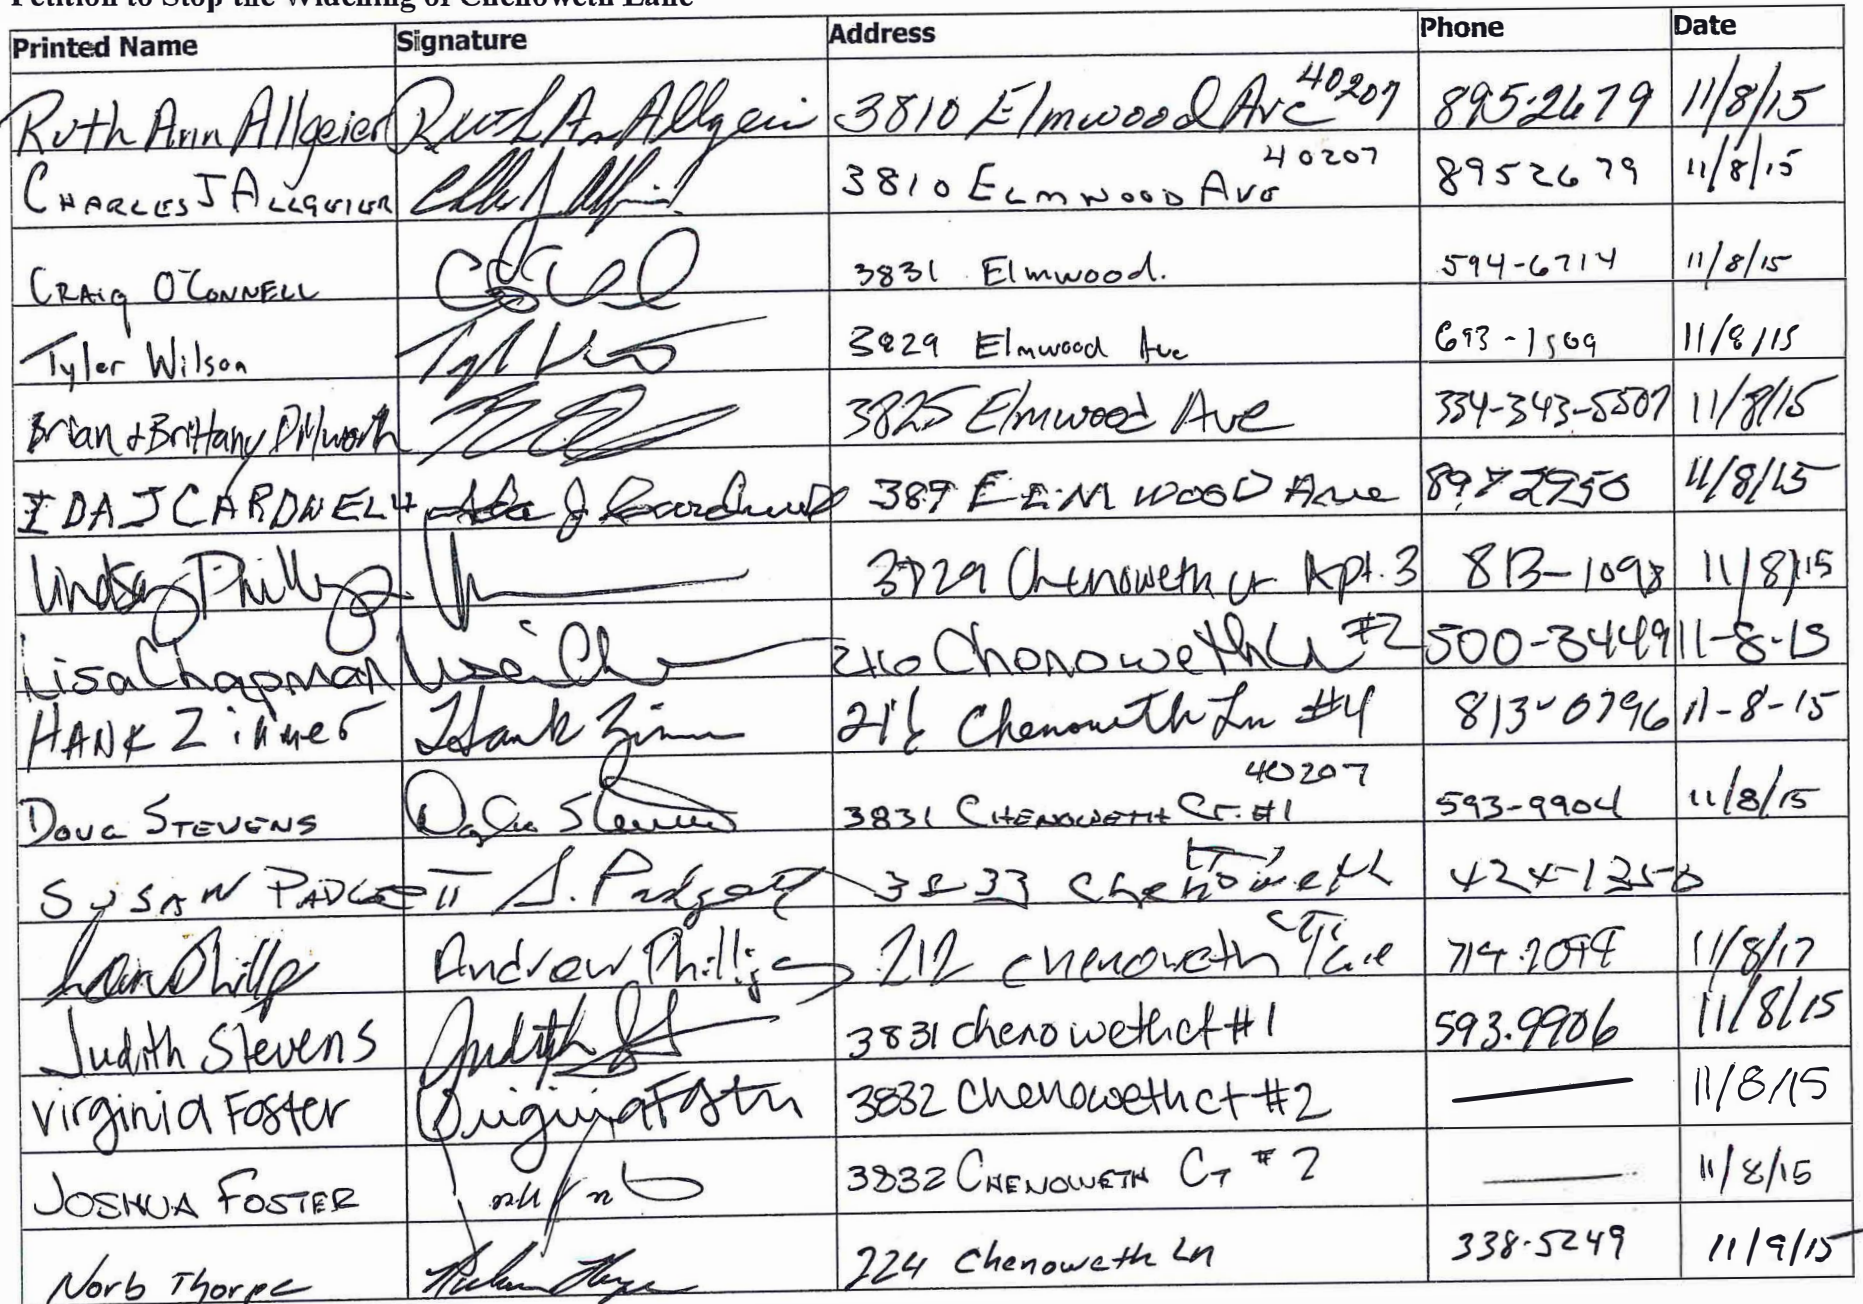 Petition to Stop the Widening of Chenoweth Lane
Printed Name Signature Address Phone Date
Ruth Ann Allgeier Ruth A. Allgeier 3810 Elmwood Ave 40207 895-2679 11/8/15
CHARLES J ALLGEIER 3810 ELMWOOD AVE 40207 8952679 11/8/15
CRAIG O'CONNELL 3831 Elmwood. 594-6714 11/8/15
Tyler Wilson 3829 Elmwood Ave 693-1509 11/8/15
Brian & Brittany Dilworth 3825 Elmwood Ave 334-343-5507 11/8/15
IDA J CARDWELL Ida J Cardwell ELMWOOD Ave 11/8/15
Lindsay Phillips Chenoweth Ct Apt. 3 813-1098 11/8/15
Lisa Chapman Lisa Ch 216 Chenoweth Ln #2 500-3449 11-8-15
HANK Zimmer Hank Zimm 216 Chenoweth Ln #4 813-0796 11-8-15
DOUG STEVENS 3831 CHENOWETH CT. #1 40207 593-9904 11/8/15
SUSAN PADGETT S. Padgett 3833 Chenoweth Ct 424-1250
Andrew Phillips 212 chenoweth 11/8/17
Judith Stevens Judith St 3831 chenoweth ct #1 593.9906 11/8/15
Virginia Foster Virginia Foster 3832 Chenoweth ct #2 — 11/8/15
JOSHUA FOSTER 3832 CHENOWETH CT #2 — 11/8/15
Norb Thorpe 224 Chenoweth Ln 338-5249 11/9/15